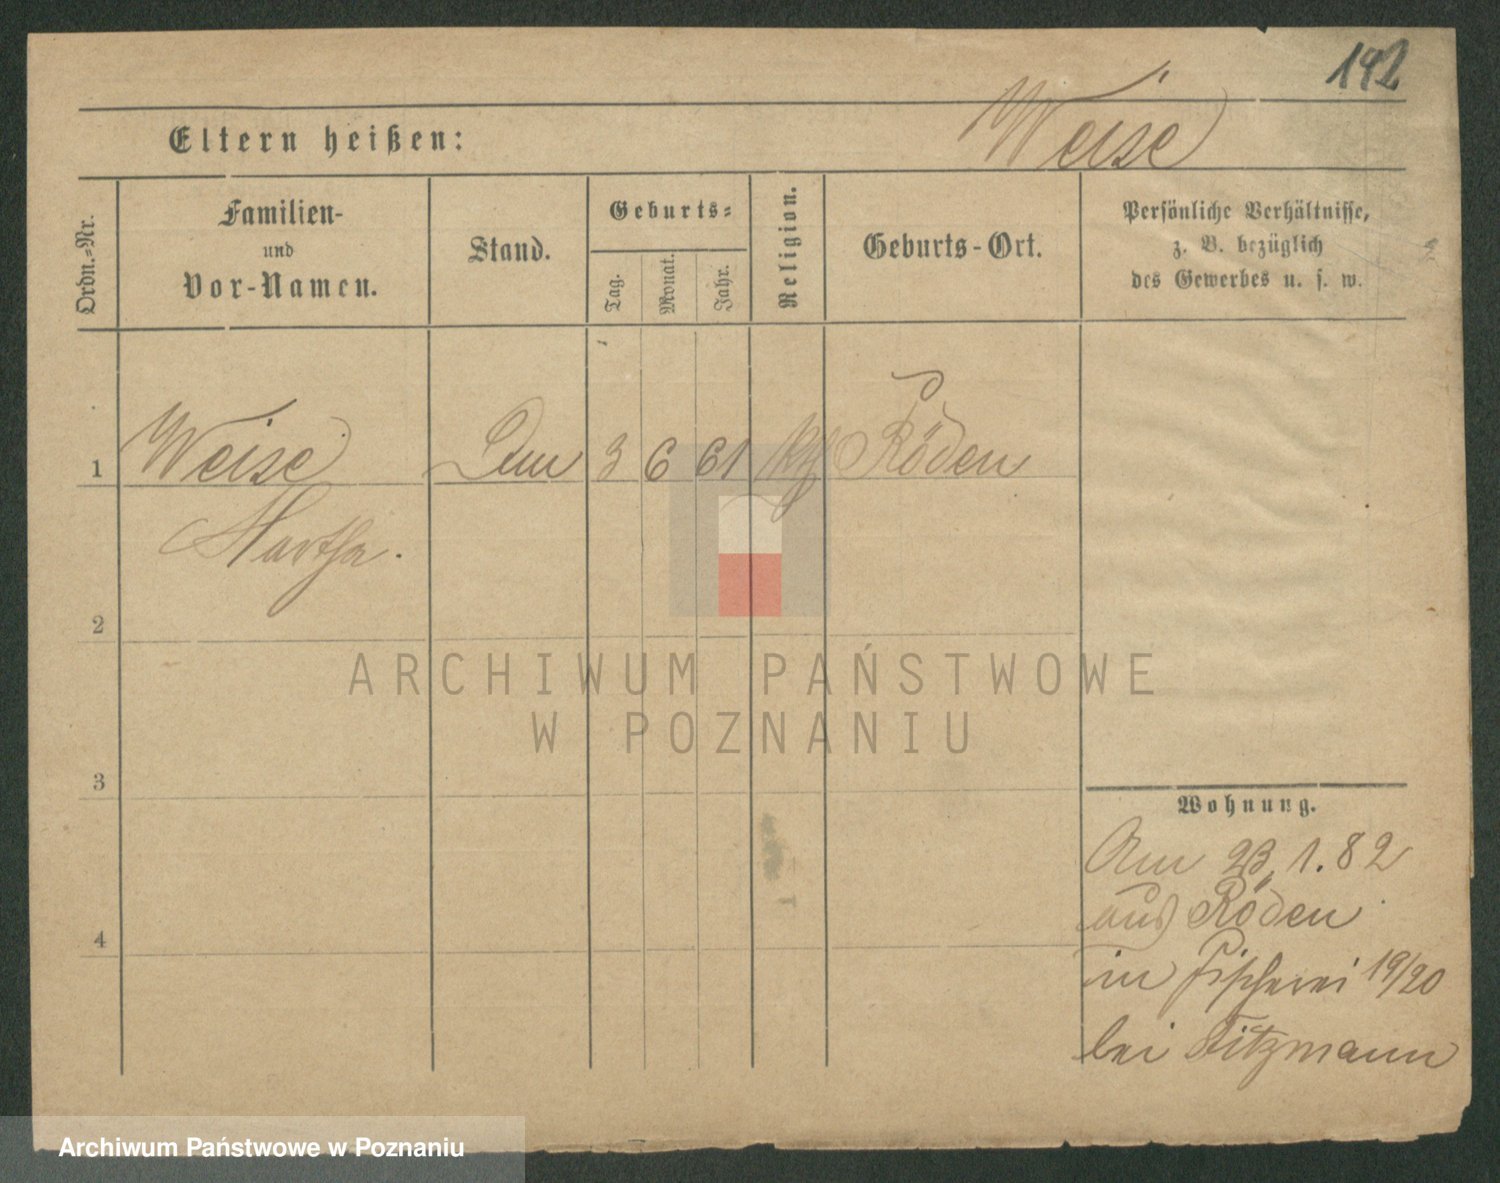 192
Weise
Eltern heißen:
Ordn.=Nr.
Familien-
und
Vor-Namen.
Stand.
Geburts=
Tag.
Monat.
Jahr.
Religion.
Geburts-Ort.
Persönliche Verhältnisse,
z. B. bezüglich
des Gewerbes u. s. w.
1 Weise 3 6 61 Röden
Martha.
2
3
4
Wohnung.
Am 23.1.82
aus Röden
in Fischerei 19/20
bei Titzmann
ARCHIWUM PAŃSTWOWE
W POZNANIU
Archiwum Państwowe w Poznaniu